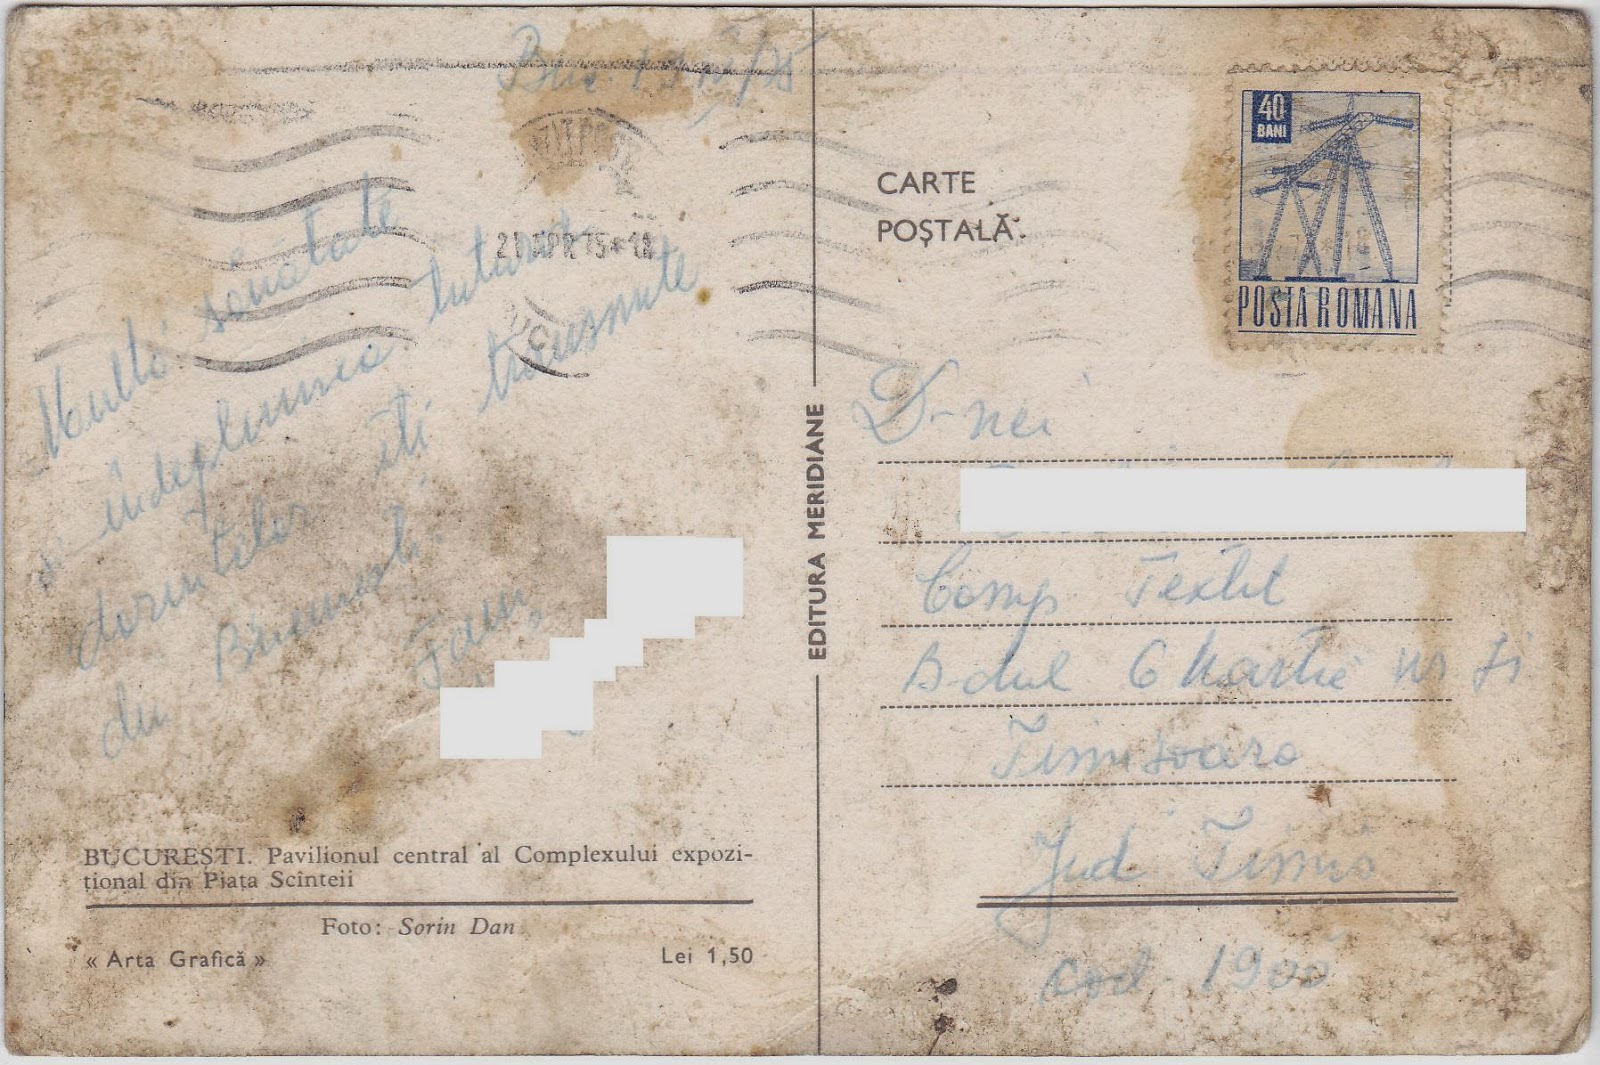 Buc
21 APR 75 * 18
Multă sănătate
și îndeplinirea tuturor
dorințelor iți transmite
din București.
Fam,
BUCUREȘTI. Pavilionul central al Complexului expozi-
țional din Piața Scînteii
Foto: Sorin Dan
« Arta Grafică »
Lei 1,50
EDITURA MERIDIANE
CARTE
POȘTALĂ
40
BANI
POSTA ROMANA
D-nei
Comp Textil
B-dul 6 Martie nr
Timisoara
Jud Timis
cod 1900